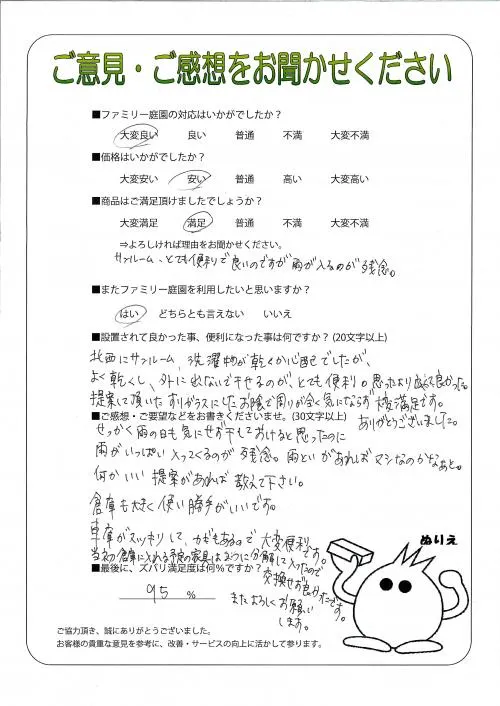 ご意見・ご感想をお聞かせください
■ファミリー庭園の対応はいかがでしたか？
大変良い 良い 普通 不満 大変不満
■価格はいかがでしたか？
大変安い 安い 普通 高い 大変高い
■商品はご満足頂けましたでしょうか？
大変満足 満足 普通 不満 大変不満
⇒よろしければ理由をお聞かせください。
サンルーム、とても便利で良いのですが雨が入るのが残念。
■またファミリー庭園を利用したいと思いますか？
はい どちらとも言えない いいえ
■設置されて良かった事、便利になった事は何ですか？(20文字以上)
北西にサンルーム、洗濯物が乾くか心配でしたが、
よく乾くし、外に出ないで干せるのが、とても便利。思ったより 良かった。
提案して頂いた すりガラスにしたお陰で周りが全く気にならず大変満足です。
ありがとうございました。
■ご感想・ご要望などをお書きくださいませ。(30文字以上)
せっかく雨の日も気にせず干しておけると思ったのに
雨がいっぱい入ってくるのが残念。雨といがあればマシなのかなぁと。
何かいい提案があれば教えて下さい。
倉庫も大きく使い勝手がいいです。
車庫がスッキリして、カギもあるので大変便利です。
当初倉庫に入れる予定の家具は 分解して入ったので
交換せず良かったです。
またよろしくお願い
します。
■最後に、ズバリ満足度は何％ですか？
95 %
ぬりえ
ご協力頂き、誠にありがとうございました。
お客様の貴重な意見を参考に、改善・サービスの向上に活かして参ります。